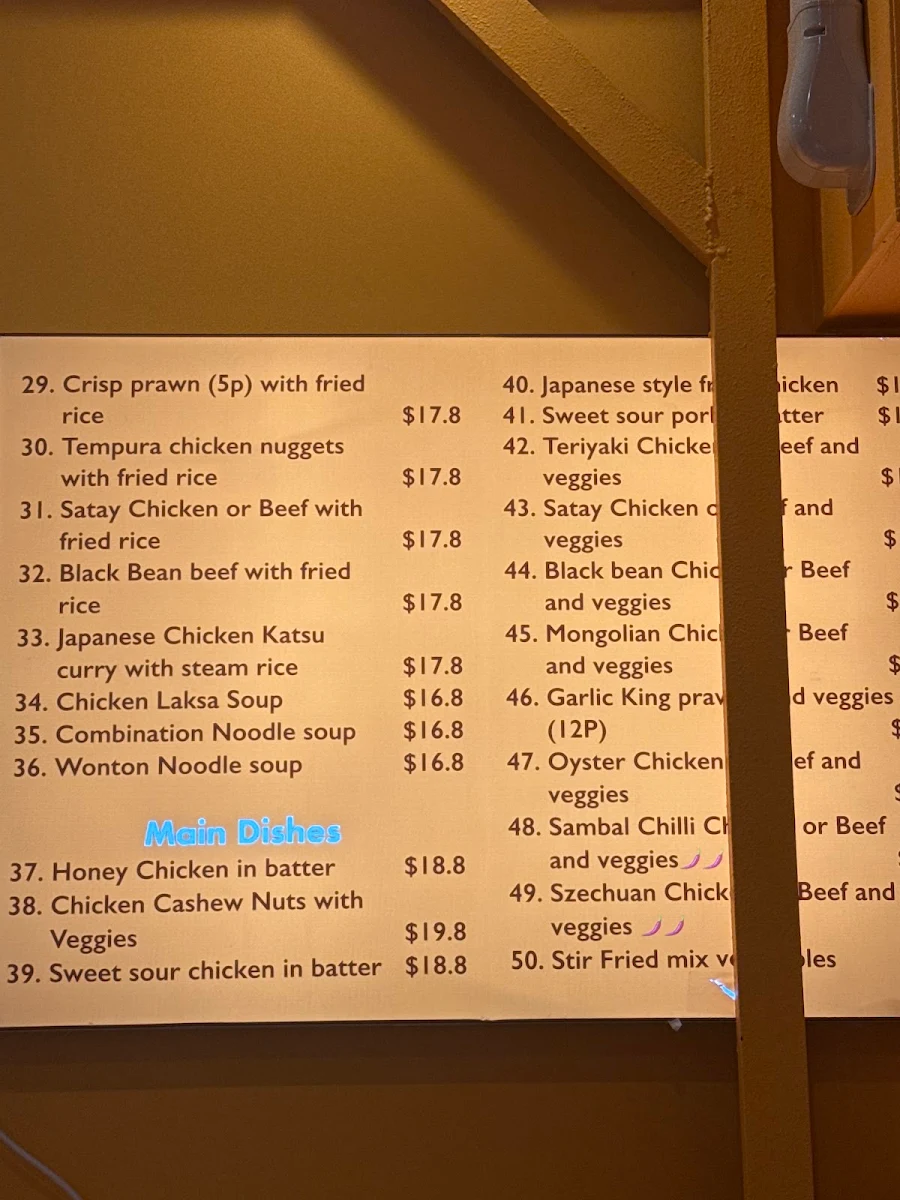 29. Crisp prawn (5p) with fried
rice $17.8
30. Tempura chicken nuggets
with fried rice $17.8
31. Satay Chicken or Beef with
fried rice $17.8
32. Black Bean beef with fried
rice $17.8
33. Japanese Chicken Katsu
curry with steam rice $17.8
34. Chicken Laksa Soup $16.8
35. Combination Noodle soup $16.8
36. Wonton Noodle soup $16.8
Main Dishes
37. Honey Chicken in batter $18.8
38. Chicken Cashew Nuts with
Veggies $19.8
39. Sweet sour chicken in batter $18.8
40. Japanese style
41. Sweet sour
42. Teriyaki and
veggies $
43. Satay Chicken and
veggies $
44. Black bean Beef
and veggies $
45. Mongolian Beef
and veggies $
46. Garlic King veggies
(12P) $
47. Oyster Chicken and
veggies
48. Sambal Chilli or Beef
and veggies
49. Szechuan Beef and
veggies
50. Stir Fried mix